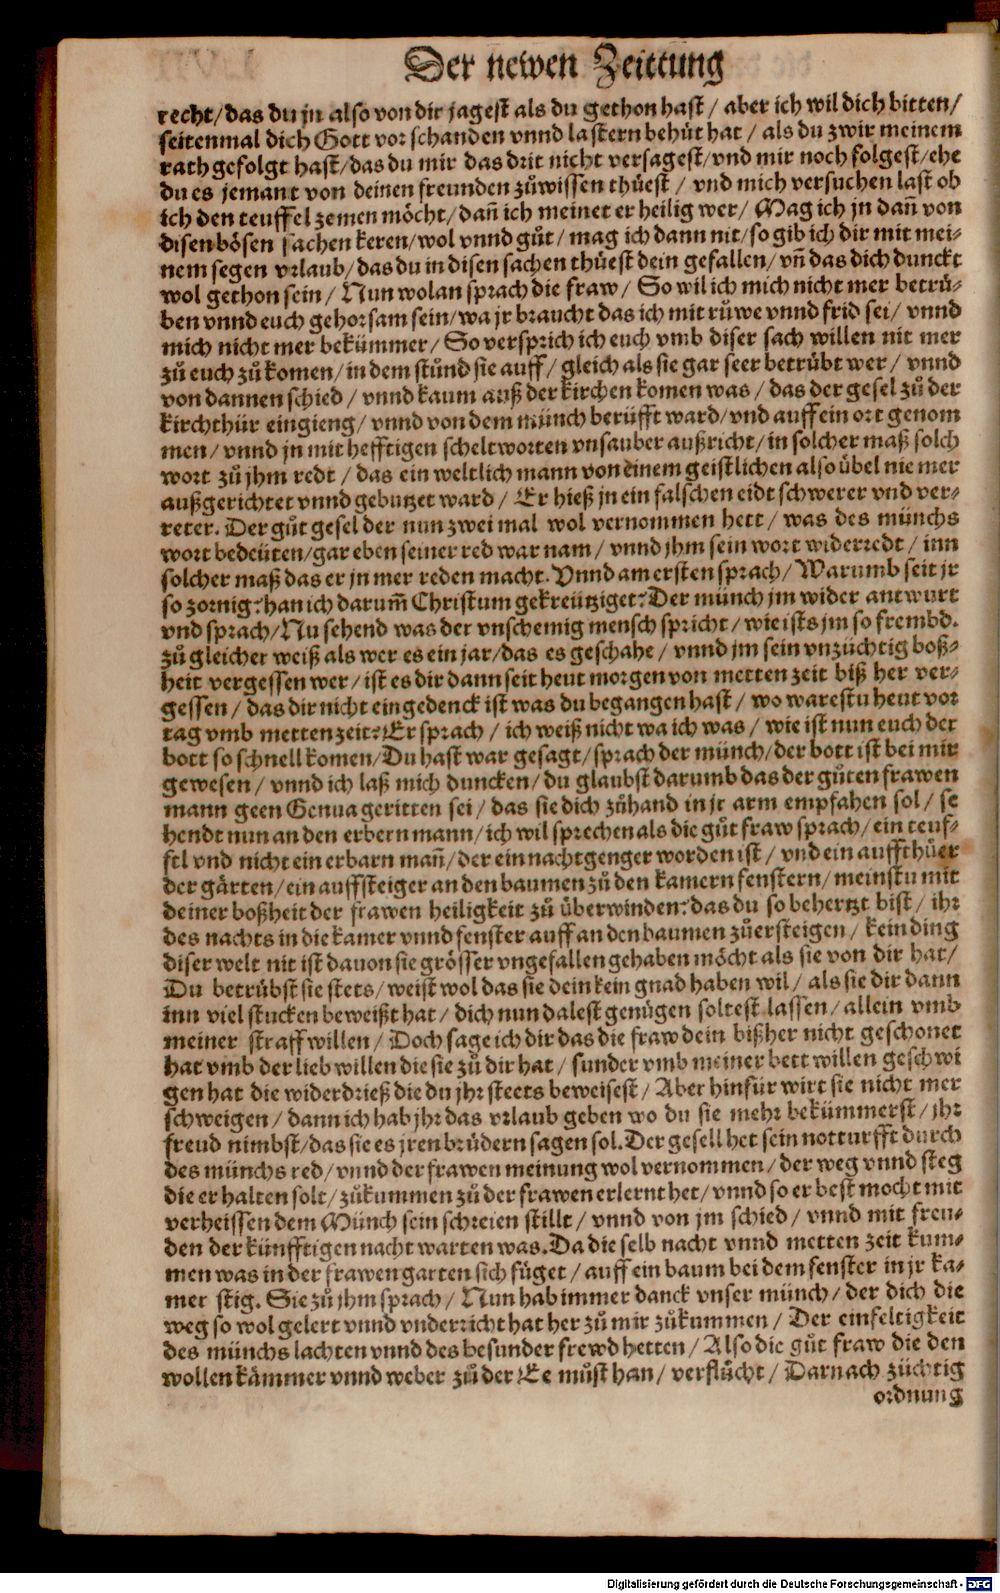 Der newen Zeittung
recht/das du jn also von dir jagest als du gethon hast/ aber ich wil dich bitten/
seitenmal dich Gott vor schanden vnnd lastern behuͤt hat/ als du zwir meinem
rath gefolgt hast/das du mir das drit nicht versagest/vnd mir noch folgest/ehe
du es jemant von deinen freunden zuͦwissen thuͤest/ vnd mich versuchen last ob
ich den teuffel zemen moͤcht/dañ ich meinet er heilig wer/ Mag ich jn dañ von
disen boͤsen sachen keren/wol vnnd guͦt/ mag ich dann nit/so gib ich dir mit mei-
nem segen vrlaub/das du in disen sachen thuͤest dein gefallen/vñ das dich dunckt
wol gethon sein/ Nun wolan sprach die fraw/ So wil ich mich nicht mer betruͤ-
ben vnnd euch gehorsam sein/wa jr braucht das ich mit ruͤwe vnnd frid sei/ vnnd
mich nicht mer bekümmer/ So versprich ich euch vmb diser sach willen nit mer
zuͦ euch zuͦ komen/in dem stuͦnd sie auff/ gleich als sie gar seer betruͤbt wer/ vnnd
von dannen schied/ vnnd kaum auß der kirchen komen was/ das der gesel zuͦ der
kirchthür eingieng/ vnnd von dem münch beruͤfft ward/vnd auff ein ort genom
men/ vnnd jn mit hefftigen scheltworten vnsauber außricht/in solcher maß solch
wort zuͦ jhm redt/ das ein weltlich mann von einem geistlichen also übel nie mer
außgerichtet vnnd gebutzet ward/ Er hieß jn ein falschen eidt schwerer vnd ver-
reter. Der guͦt gesel der nun zwei mal wol vernommen hett/ was des münchs
wort bedeüten/gar eben seiner red war nam/ vnnd jhm sein wort widerredt/ inn
solcher maß das er jn mer reden macht. Vnnd am ersten sprach/ Warumb seit jr
so zornig? han ich darum̃ Christum gekreütziget? Der münch jm wider antwurt
vnd sprach/Nu sehend was der vnschemig mensch spricht/ wie ists jm so frembd.
zuͦ gleicher weiß als wer es ein jar/das es geschahe/ vnnd jm sein vnzüchtig boß-
heit vergessen wer/ ist es dir dann seit heut morgen von metten zeit biß her ver-
gessen/ das dir nicht eingedenck ist was du begangen hast/ wo warestu heut vor
tag vmb mettenzeit? Er sprach/ ich weiß nicht wa ich was/ wie ist nun euch der
bott so schnell komen/Du hast war gesagt/sprach der münch/der bott ist bei mir
gewesen/ vnnd ich laß mich duncken/du glaubst darumb das der guͦten frawen
mann geen Genua geritten sei/ das sie dich zuͦhand in jr arm empfahen sol/ se
hendt nun an den erbern mann/ich wil sprechen als die guͦt fraw sprach/ ein teuf-
fel vnd nicht ein erbarn mañ/der ein nachtgenger worden ist/ vnd ein auffthuͤer
der gaͤrten/ein auffsteiger an den baumen zuͦ den kamern fenstern/meinstu mit
deiner boßheit der frawen heiligkeit zuͦ überwinden? das du so behertzt bist/ ihr
des nachts in die kamer vnnd fenster auff an den baumen zuͦersteigen/ kein ding
diser welt nit ist dauon sie groͤsser vngefallen gehaben moͤcht als sie von dir hat/
Du betruͤbst sie stets/weist wol das sie dein kein gnad haben wil/ als sie dir dann
inn viel stucken beweißt hat/ dich nun dalest genuͤgen soltest lassen/allein vmb
meiner straff willen/ Doch sage ich dir das die fraw dein bißher nicht geschonet
hat vmb der lieb willen die sie zuͦ dir hat/ sunder vmb meiner bett willen geschwi
gen hat die widerdrieß die du jhr steets beweisest/ Aber hinfür wirt sie nicht mer
schweigen/ dann ich hab jhr das vrlaub geben wo du sie mehr bekümmerst/ jhr
freud nimbst/das sie es jren bruͤdern sagen sol. Der gesell het sein notturfft durch
des münchs red/vnnd der frawen meinung wol vernommen/der weg vnnd steg
die er halten solt/zuͦkummen zuͦ der frawen erlernt het/vnnd so er best mocht mit
verheissen dem Münch sein schreien stillt/ vnnd von jm schied/ vnnd mit freu-
den der künfftigen nacht warten was. Da die selb nacht vnnd metten zeit kum-
men was in der frawen garten sich fuͤget/ auff ein baum bei dem fenster in jr ka-
mer stig. Sie zuͦ jhm sprach/ Nun hab immer danck vnser münch/ der dich die
weg so wol gelert vnnd vnderricht hat her zuͦ mir zuͦkummen/ Der einfeltigkeit
des münchs lachten vnnd des besunder frewd hetten/ Also die guͦt fraw die den
wollen kaͤmmer vnnd weber zuͦ der Ee muͦst han/ verfluͦcht/ Darnach züchtig
ordnung
Digitalisierung gefördert durch die Deutsche Forschungsgemeinschaft - DFG